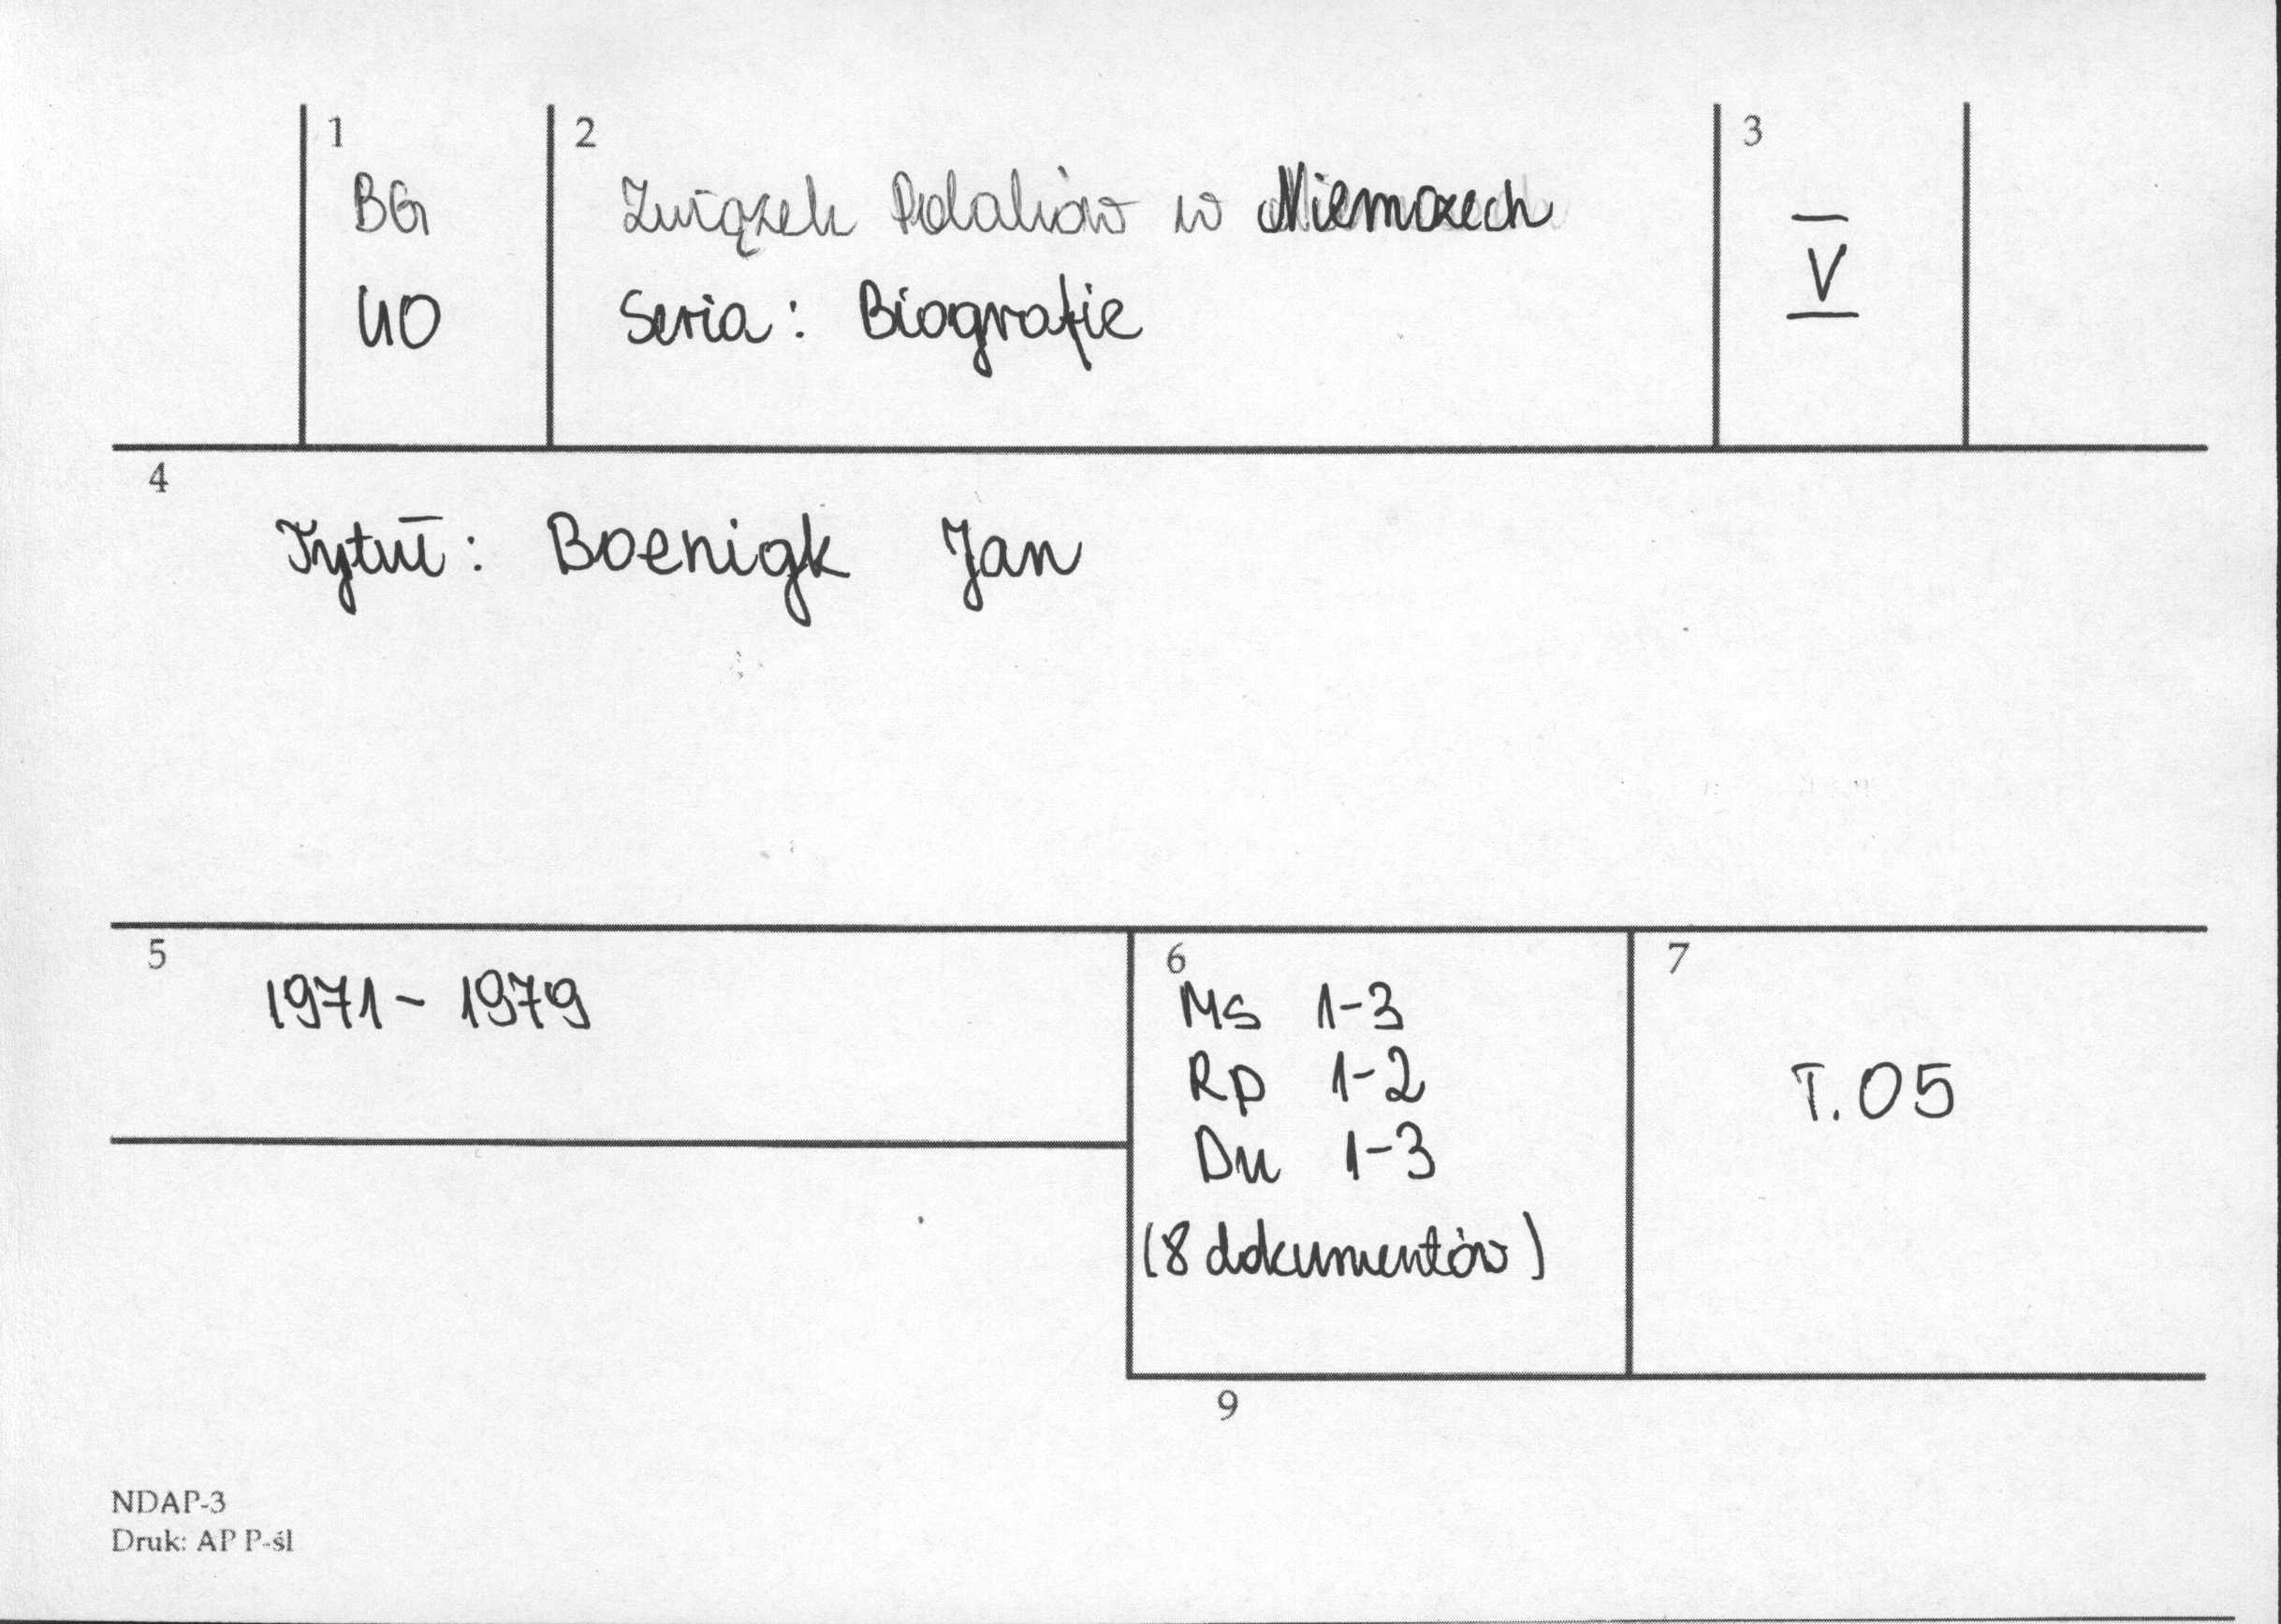 1
BG
UO
2
Związek Polaków w Niemczech
Seria: Biografie
3
V
4
Tytuł: Boenigk Jan
5
1971 - 1979
6
Ms 1-3
Rp 1-2
Du 1-3
(8 dokumentów)
7
T. 05
9
NDAP-3
Druk: AP P-śl